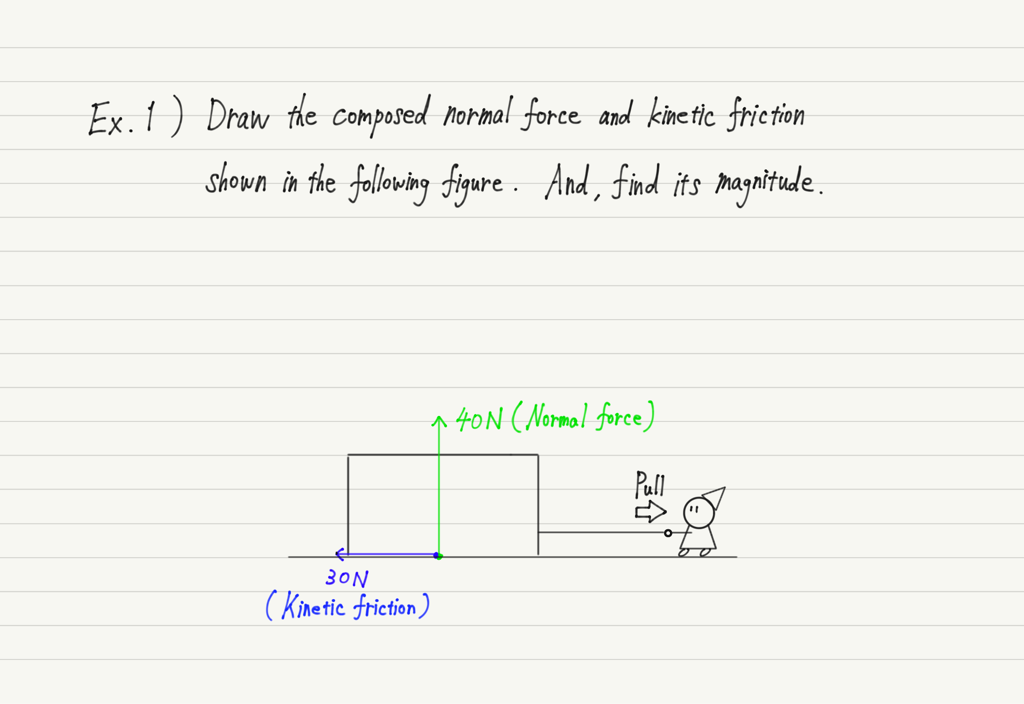 Ex. 1) Draw the composed normal force and kinetic friction
shown in the following figure. And, find its magnitude.
40N (Normal force)
Pull
30N
(Kinetic friction)